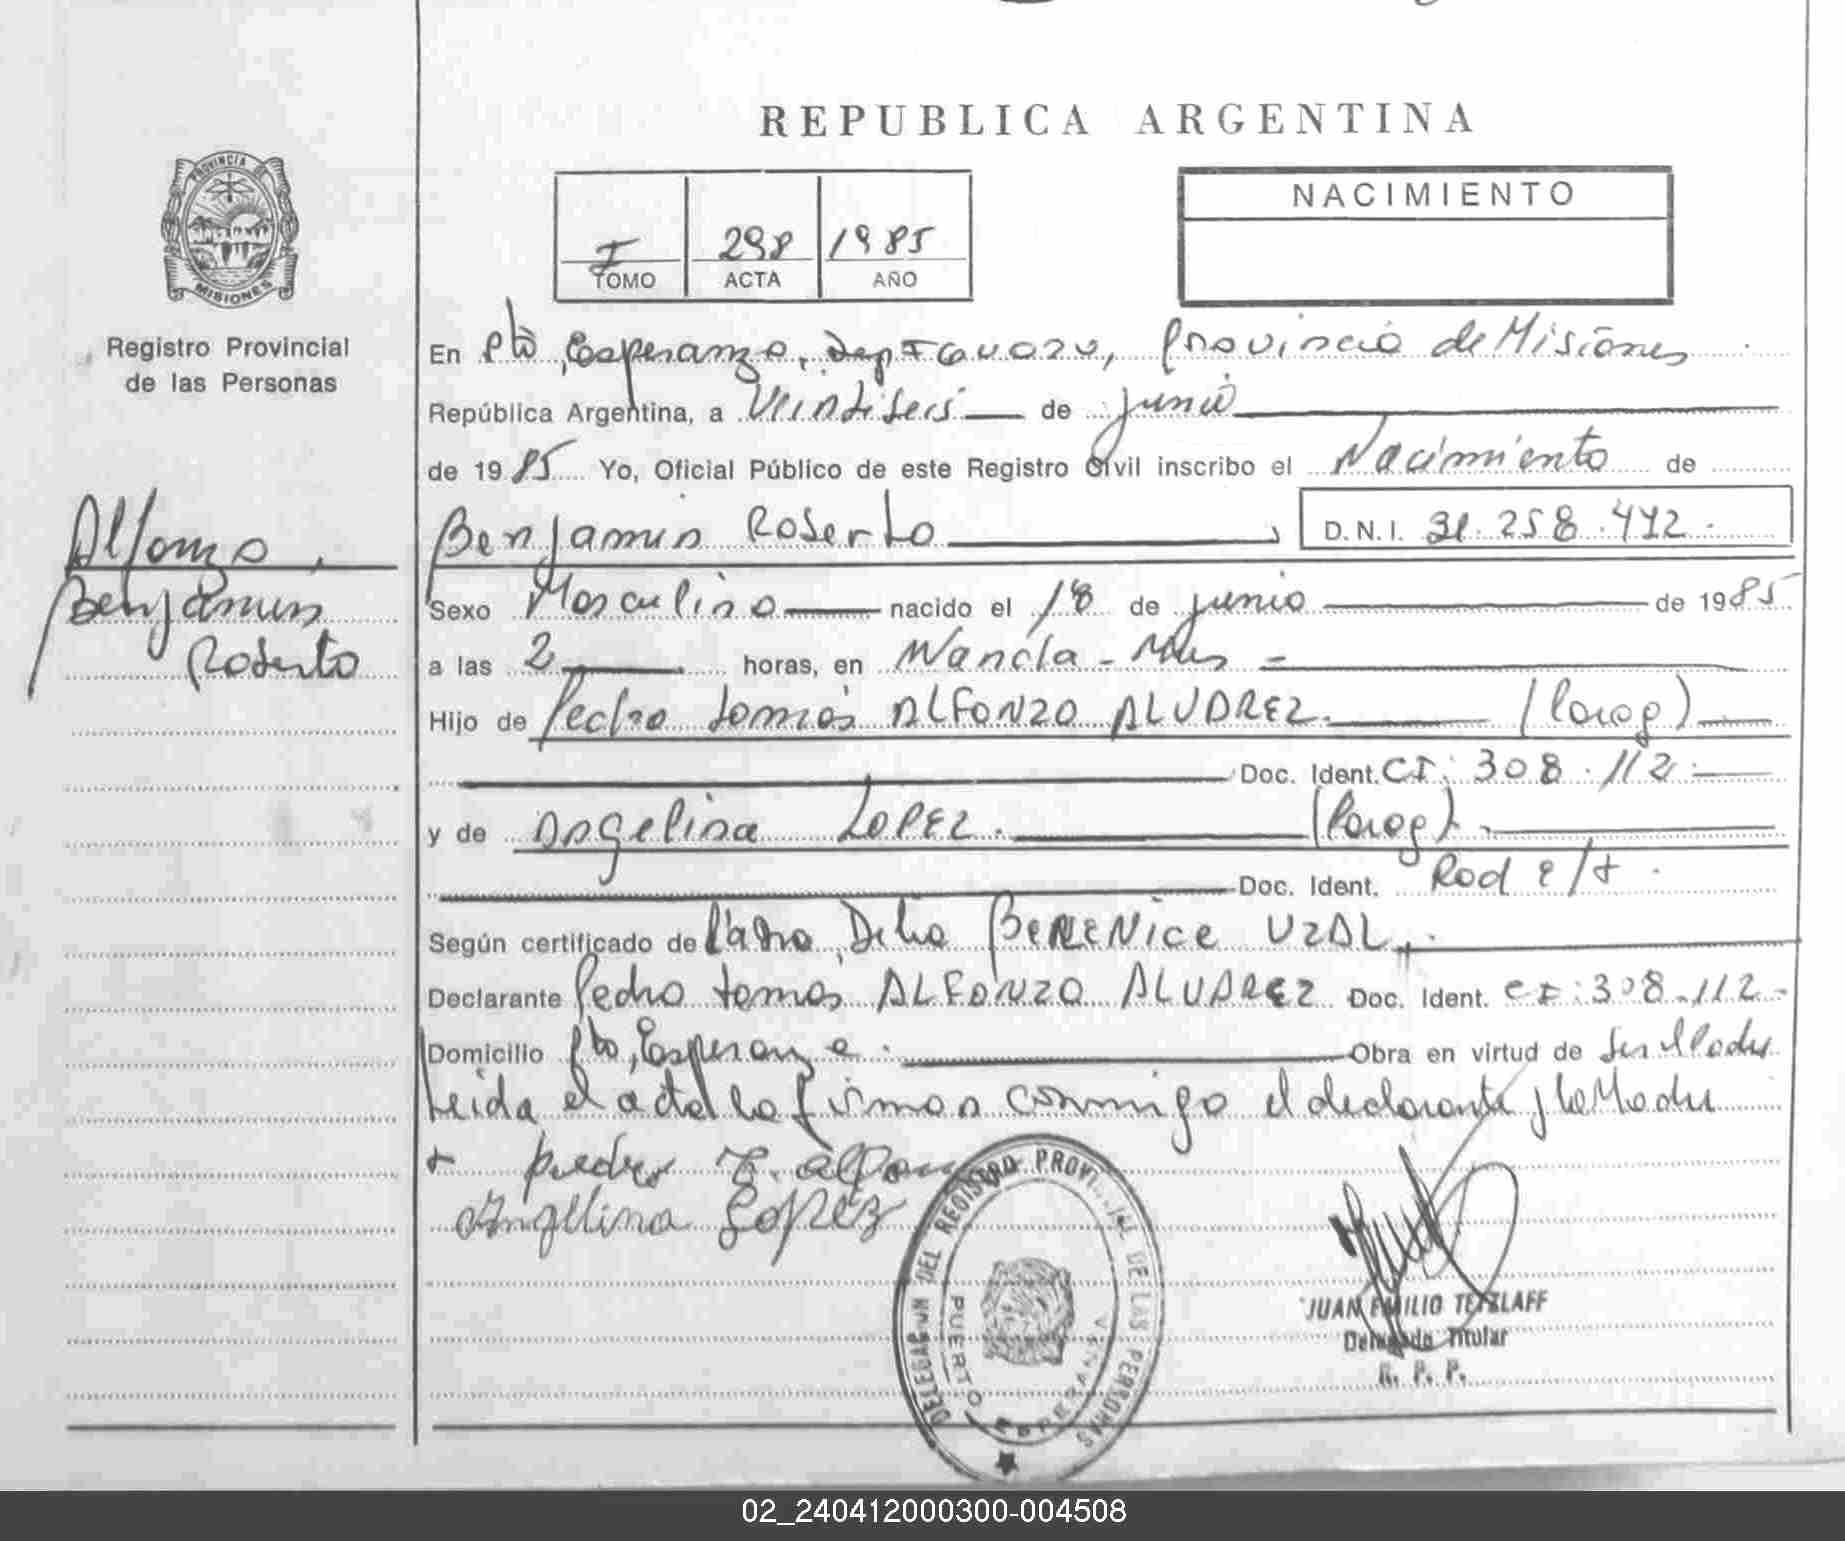 REPUBLICA ARGENTINA
PROVINCIA DE
MISIONES
Registro Provincial
de las Personas
I 298 1985
TOMO ACTA AÑO
NACIMIENTO
En Pto, Esperanza, Dep Iguazu, Provincia de Misiones
República Argentina, a Veintiseis de junio
de 1985 Yo, Oficial Público de este Registro Civil inscribo el Nacimiento de
Alfonzo,
Benjamin
Roberto
Benjamin Roberto D.N.I. 31.258.472.
Sexo Masculino nacido el 18 de junio de 1985
a las 2 horas, en Wanda - Mnes
Hijo de Pedro tomás ALFONZO ALVAREZ. (Parag)
Doc. Ident. CI: 308.112.
y de Angelina LOPEZ. (Parag).
Doc. Ident.
Según certificado de BERENICE UZAL,.
Declarante Pedro tomas ALFONZO ALVAREZ Doc. Ident. CI: 308.112.
Domicilio Pto, Esperanza. Obra en virtud de
Leida el acta la firman conmigo el declarante y la Madre
+ Pedro T. alfonzo
Angelina Lopéz
DELEGACION DEL REGISTRO PROVINCIAL DE LAS PERSONAS
PUERTO ESPERANZA
JUAN EMILIO TETZLAFF
Delegado Titular
R. P. P.
02_240412000300-004508